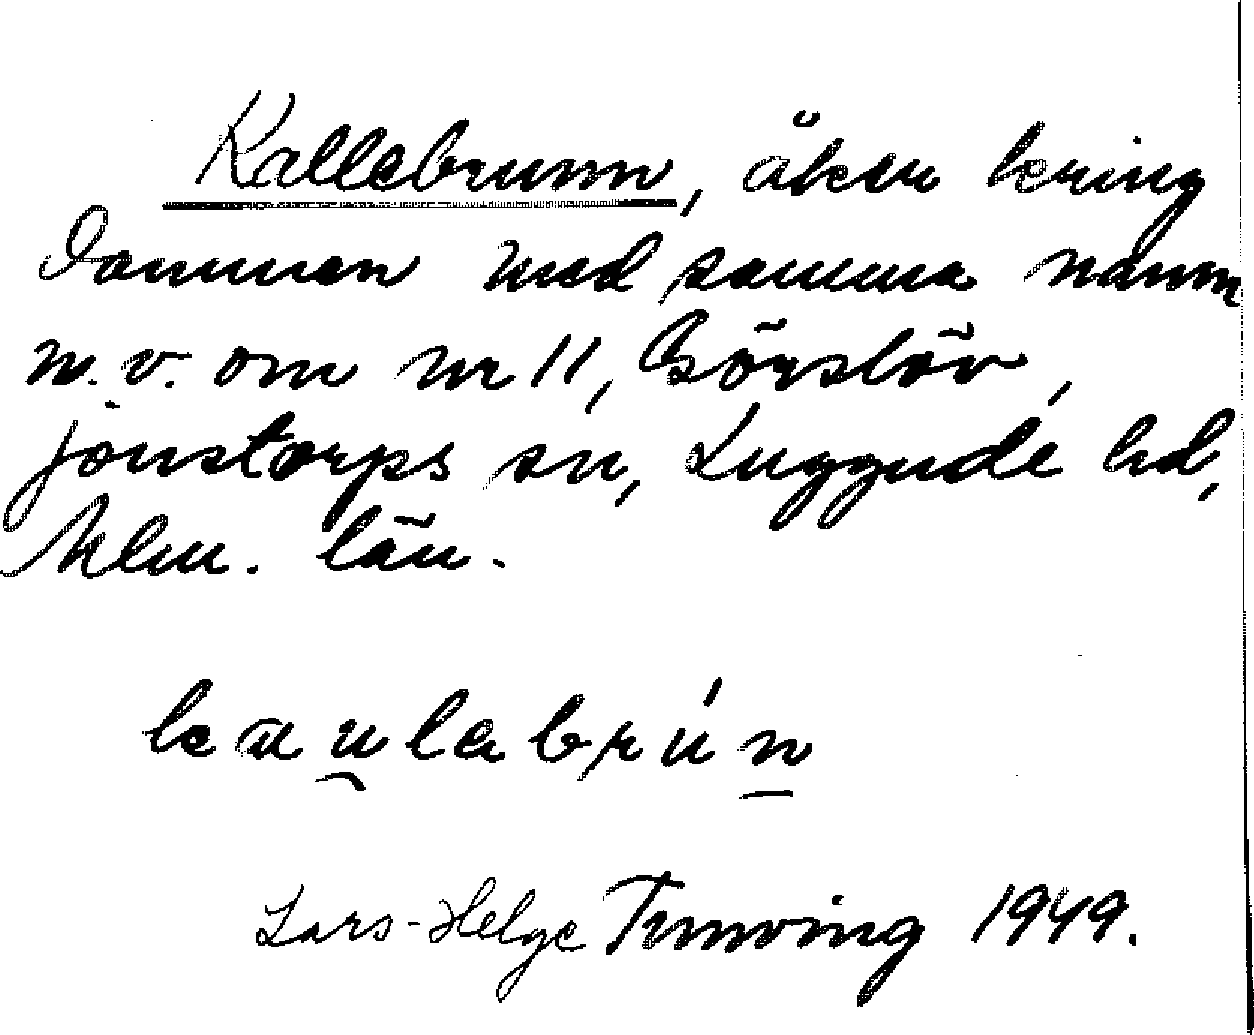 Kallebrunn, åker kring
dammen med samma namn
n.v. om nr 11, Görslöv,
Jonstorps sn, Luggude hd,
Mlm. län.
Lars-Helge Tunving 1949.